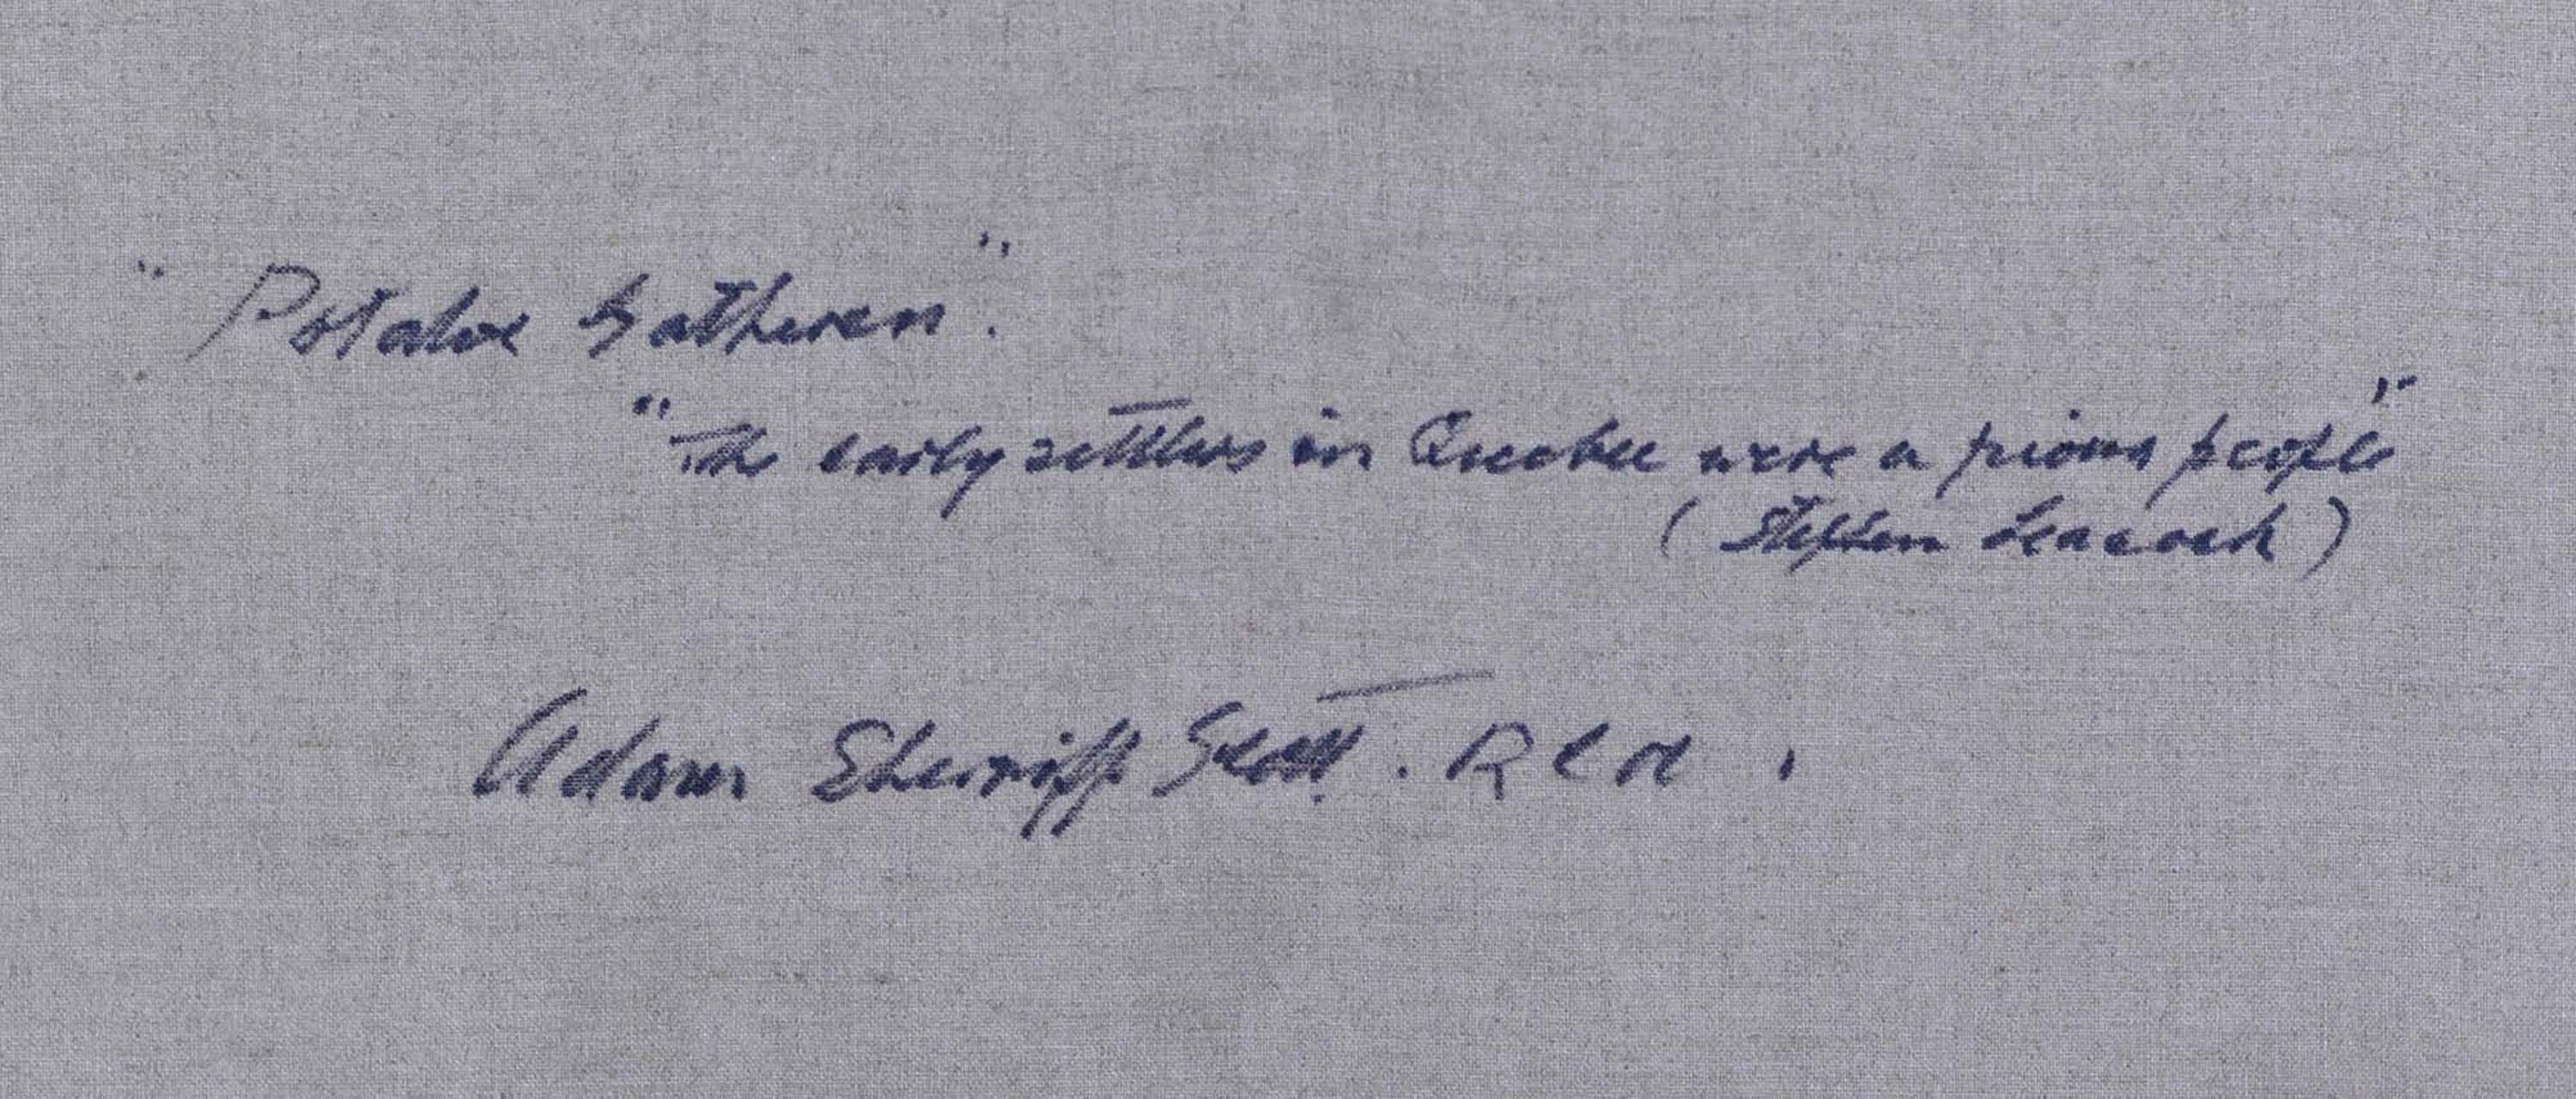 "Potatoe Gatherers".
"The early settlers in Quebec were a pious people"
(Stephen Leacock)
Adam Sherriff Scott. RCA.